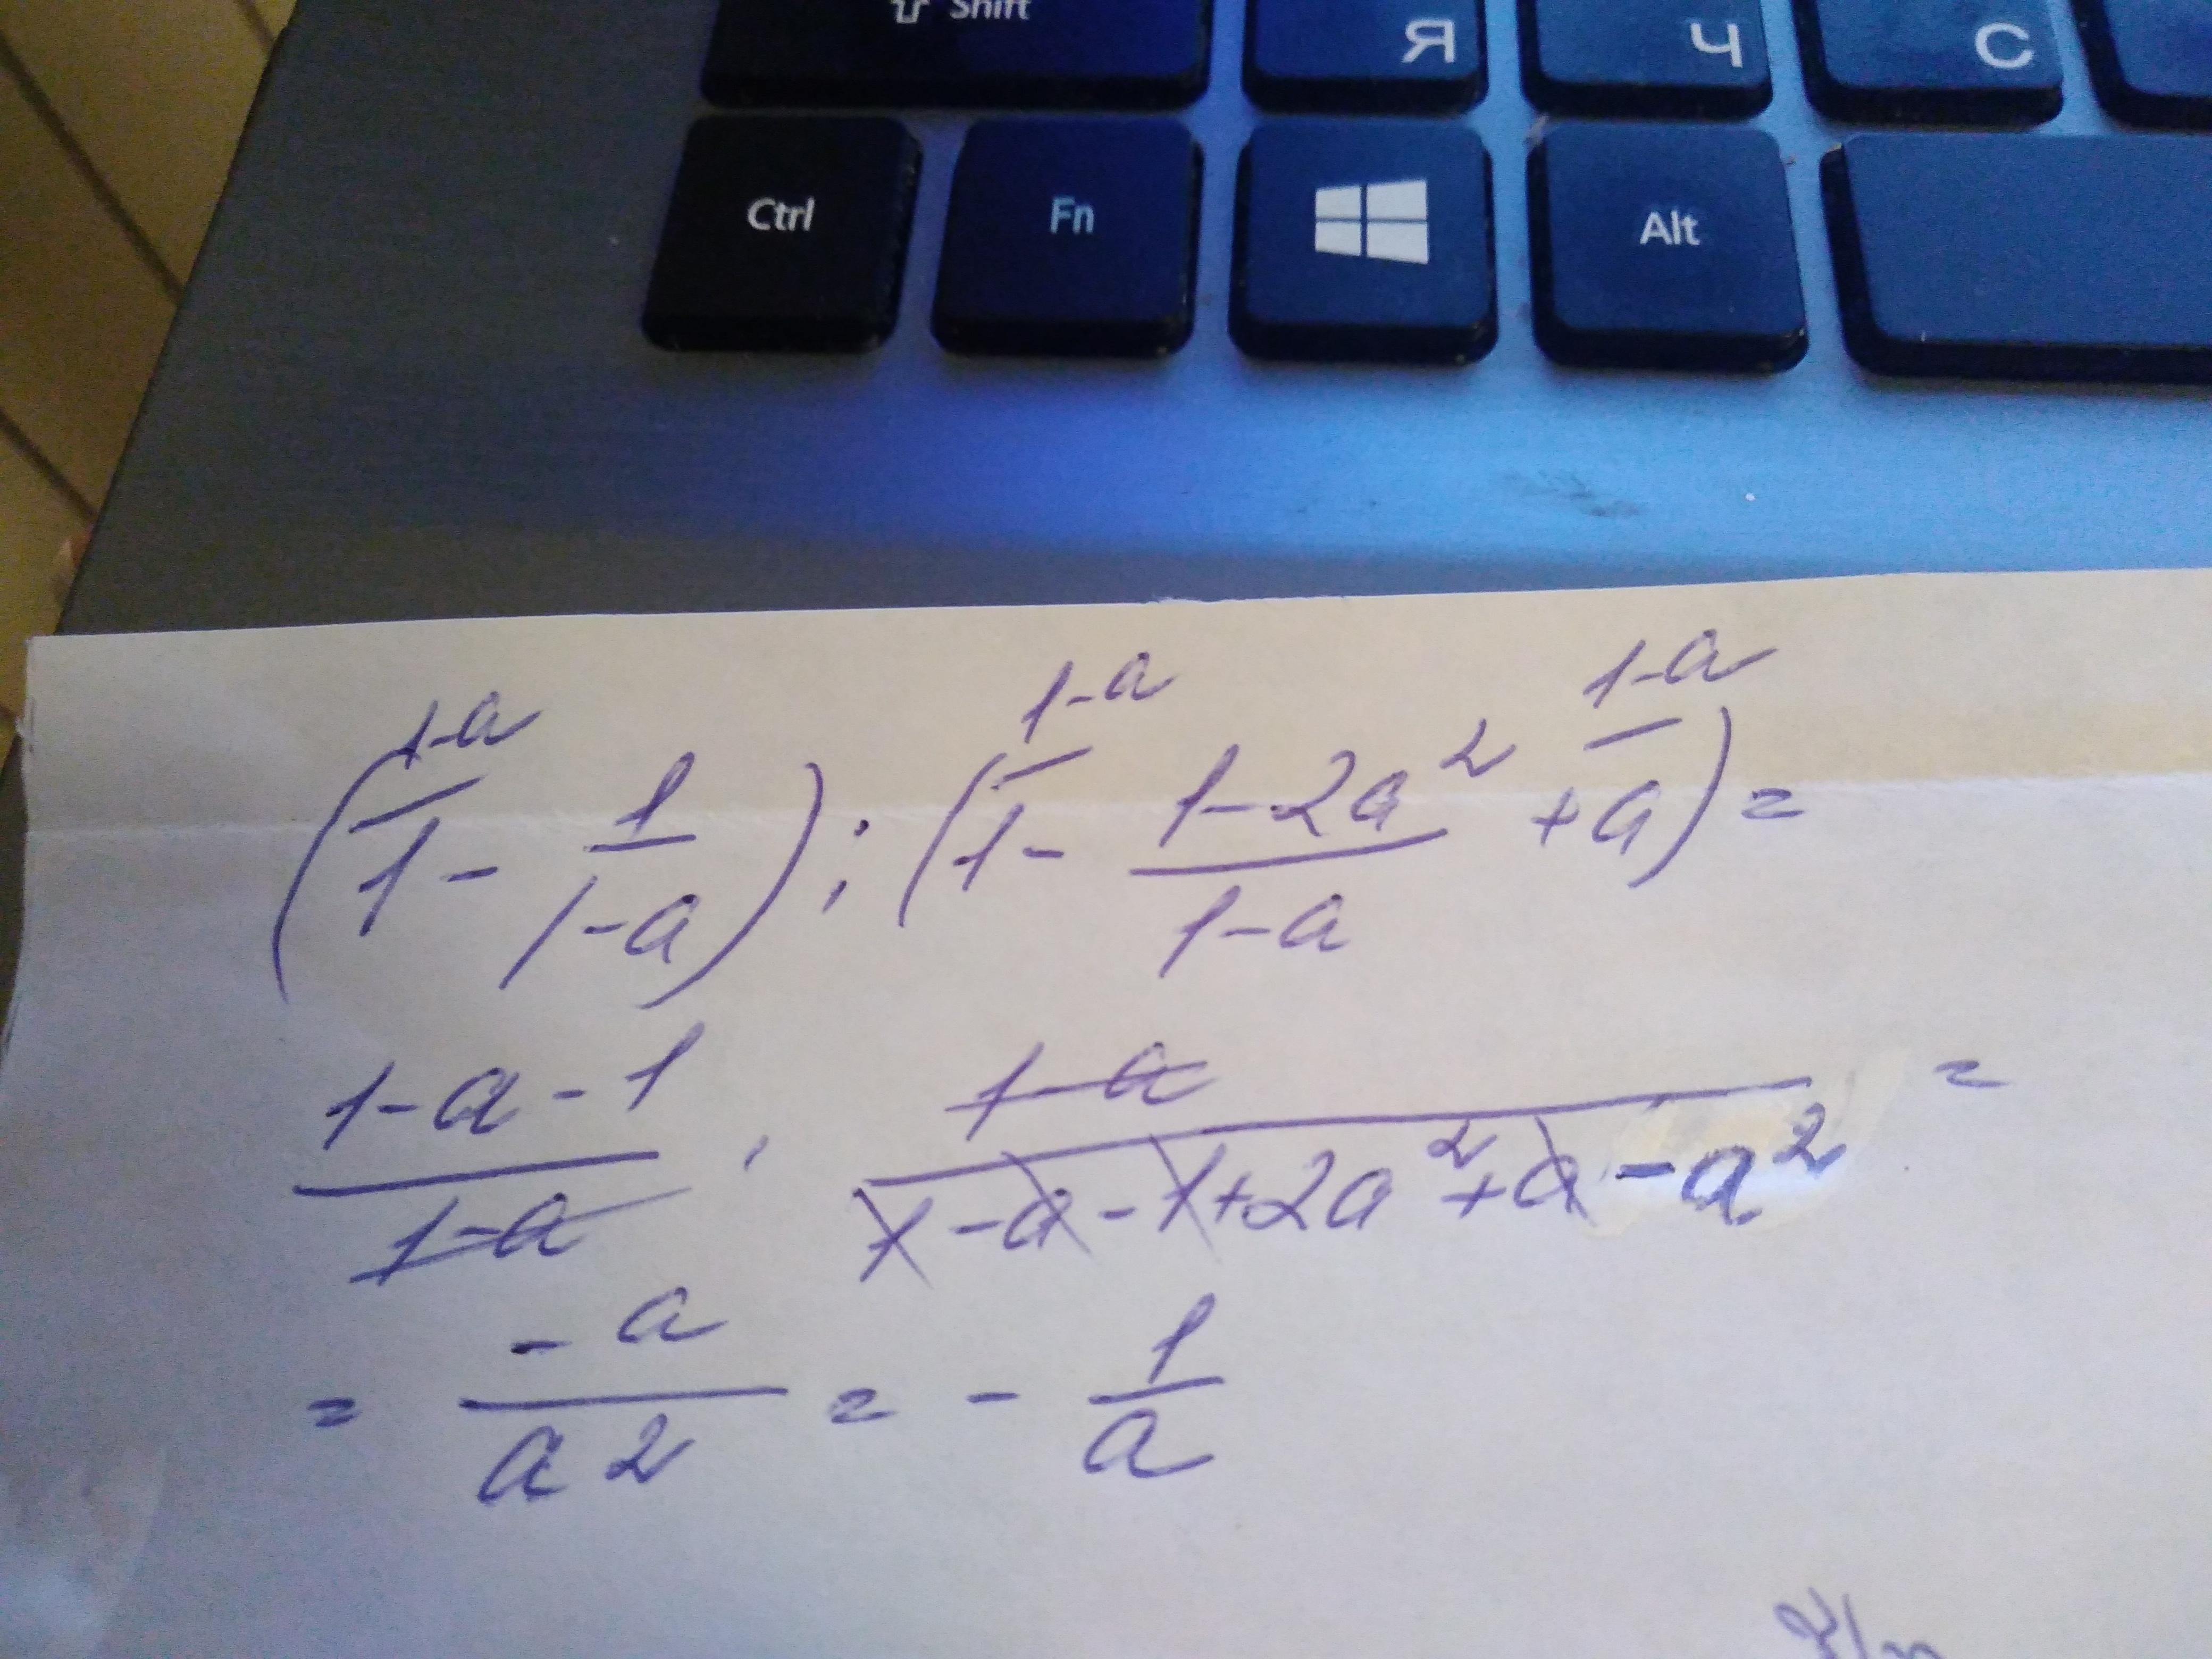 Shift Я Ч С
Ctrl Fn Alt
1-a 1-a 1-a
(1 - 1/(1-a)) : (1 - (1-2a²)/(1-a) + a) =
(1-a-1)/(1-a) · (1-a)/(1-a-1+2a²+a-a²) =
= -a/a² = - 1/a